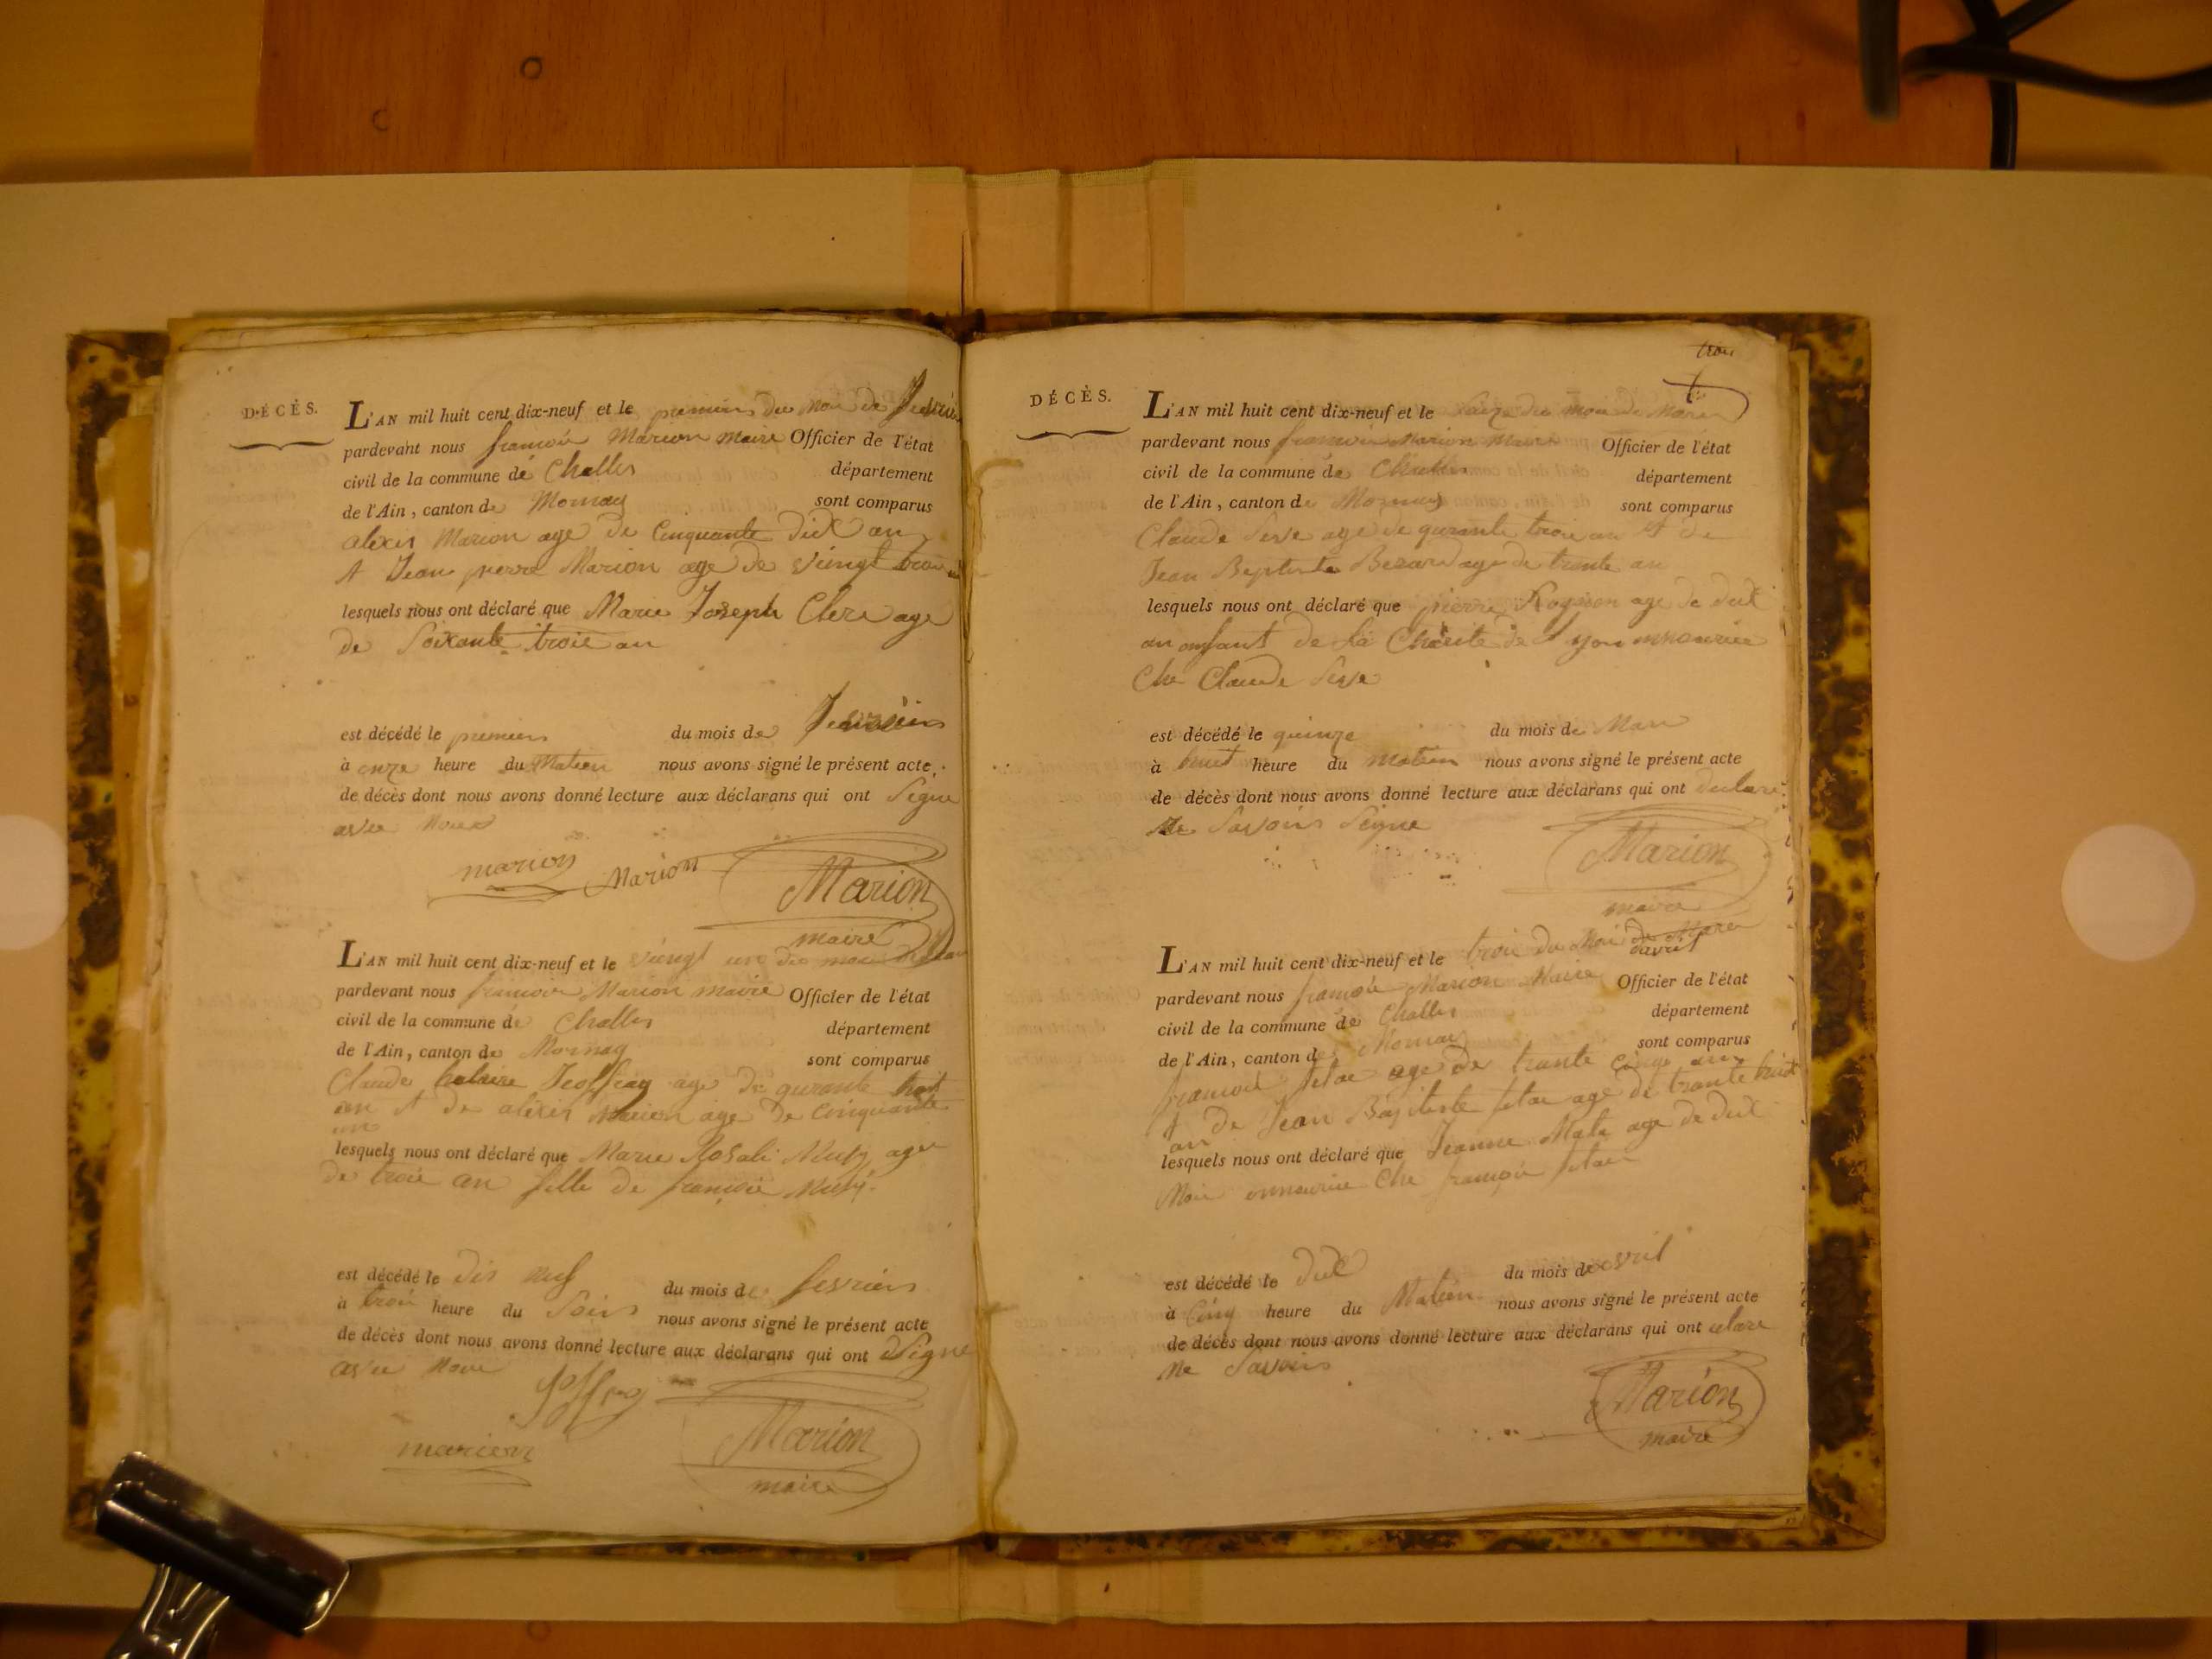 DÉCÈS.
L'AN mil huit cent dix-neuf et le premier du Moi de
pardevant nous françois Marion maire Officier de l'état
civil de la commune de Challes département
de l'Ain, canton de Mornay sont comparus
alexis Marion age de Cinquante dix an
A Jean pierre Marion age de vingt trois
lesquels nous ont déclaré que Marie Joseph Clere age
de Soixante trois an
est décédé le premier du mois de
à onze heure du Matein nous avons signé le présent acte
de décès dont nous avons donné lecture aux déclarans qui ont Signe
avec Nous
marion Marion Marion
maire
L'AN mil huit cent dix-neuf et le vingt un du moi
pardevant nous françois Marion maire Officier de l'état
civil de la commune de Challes département
de l'Ain, canton de Mornay sont comparus
Claude age de qurante
an A de alexis Marion age de Cinquante
an
lesquels nous ont déclaré que Marie Rosali age
de trois an fille de françois
est décédé le dis neuf du mois de fevrier
à trois heure du Soir nous avons signé le présent acte
de décès dont nous avons donné lecture aux déclarans qui ont Signe
avec Nous
marion Marion
maire
trois
DÉCÈS.
L'AN mil huit cent dix-neuf et le Seize du moi de Mars
pardevant nous françois Marion Maire Officier de l'état
civil de la commune de Challes département
de l'Ain, canton de Mornay sont comparus
Claude Seve age de qurante trois an A de
Jean Baptiste age de trante an
lesquels nous ont déclaré que pierre age de dix
an enfant de la Charite de Lyon
Che Claude Seve
est décédé le quinze du mois de Mars
à huit heure du Matein nous avons signé le présent acte
de décès dont nous avons donné lecture aux déclarans qui ont declare
Ne Savoir Signe
Marion
maire
L'AN mil huit cent dix-neuf et le trois du Moi davril
pardevant nous françois Marion Maire Officier de l'état
civil de la commune de Challes département
de l'Ain, canton de Mornay sont comparus
françois age de trante cinq an
A de Jean Baptiste age de trante huit
an
lesquels nous ont déclaré que Jeanne age de dix
Moi Che françois
est décédé le dix du mois de avril
à Cinq heure du Matein nous avons signé le présent acte
de décès dont nous avons donné lecture aux déclarans qui ont
Ne Savoir
Marion
maire